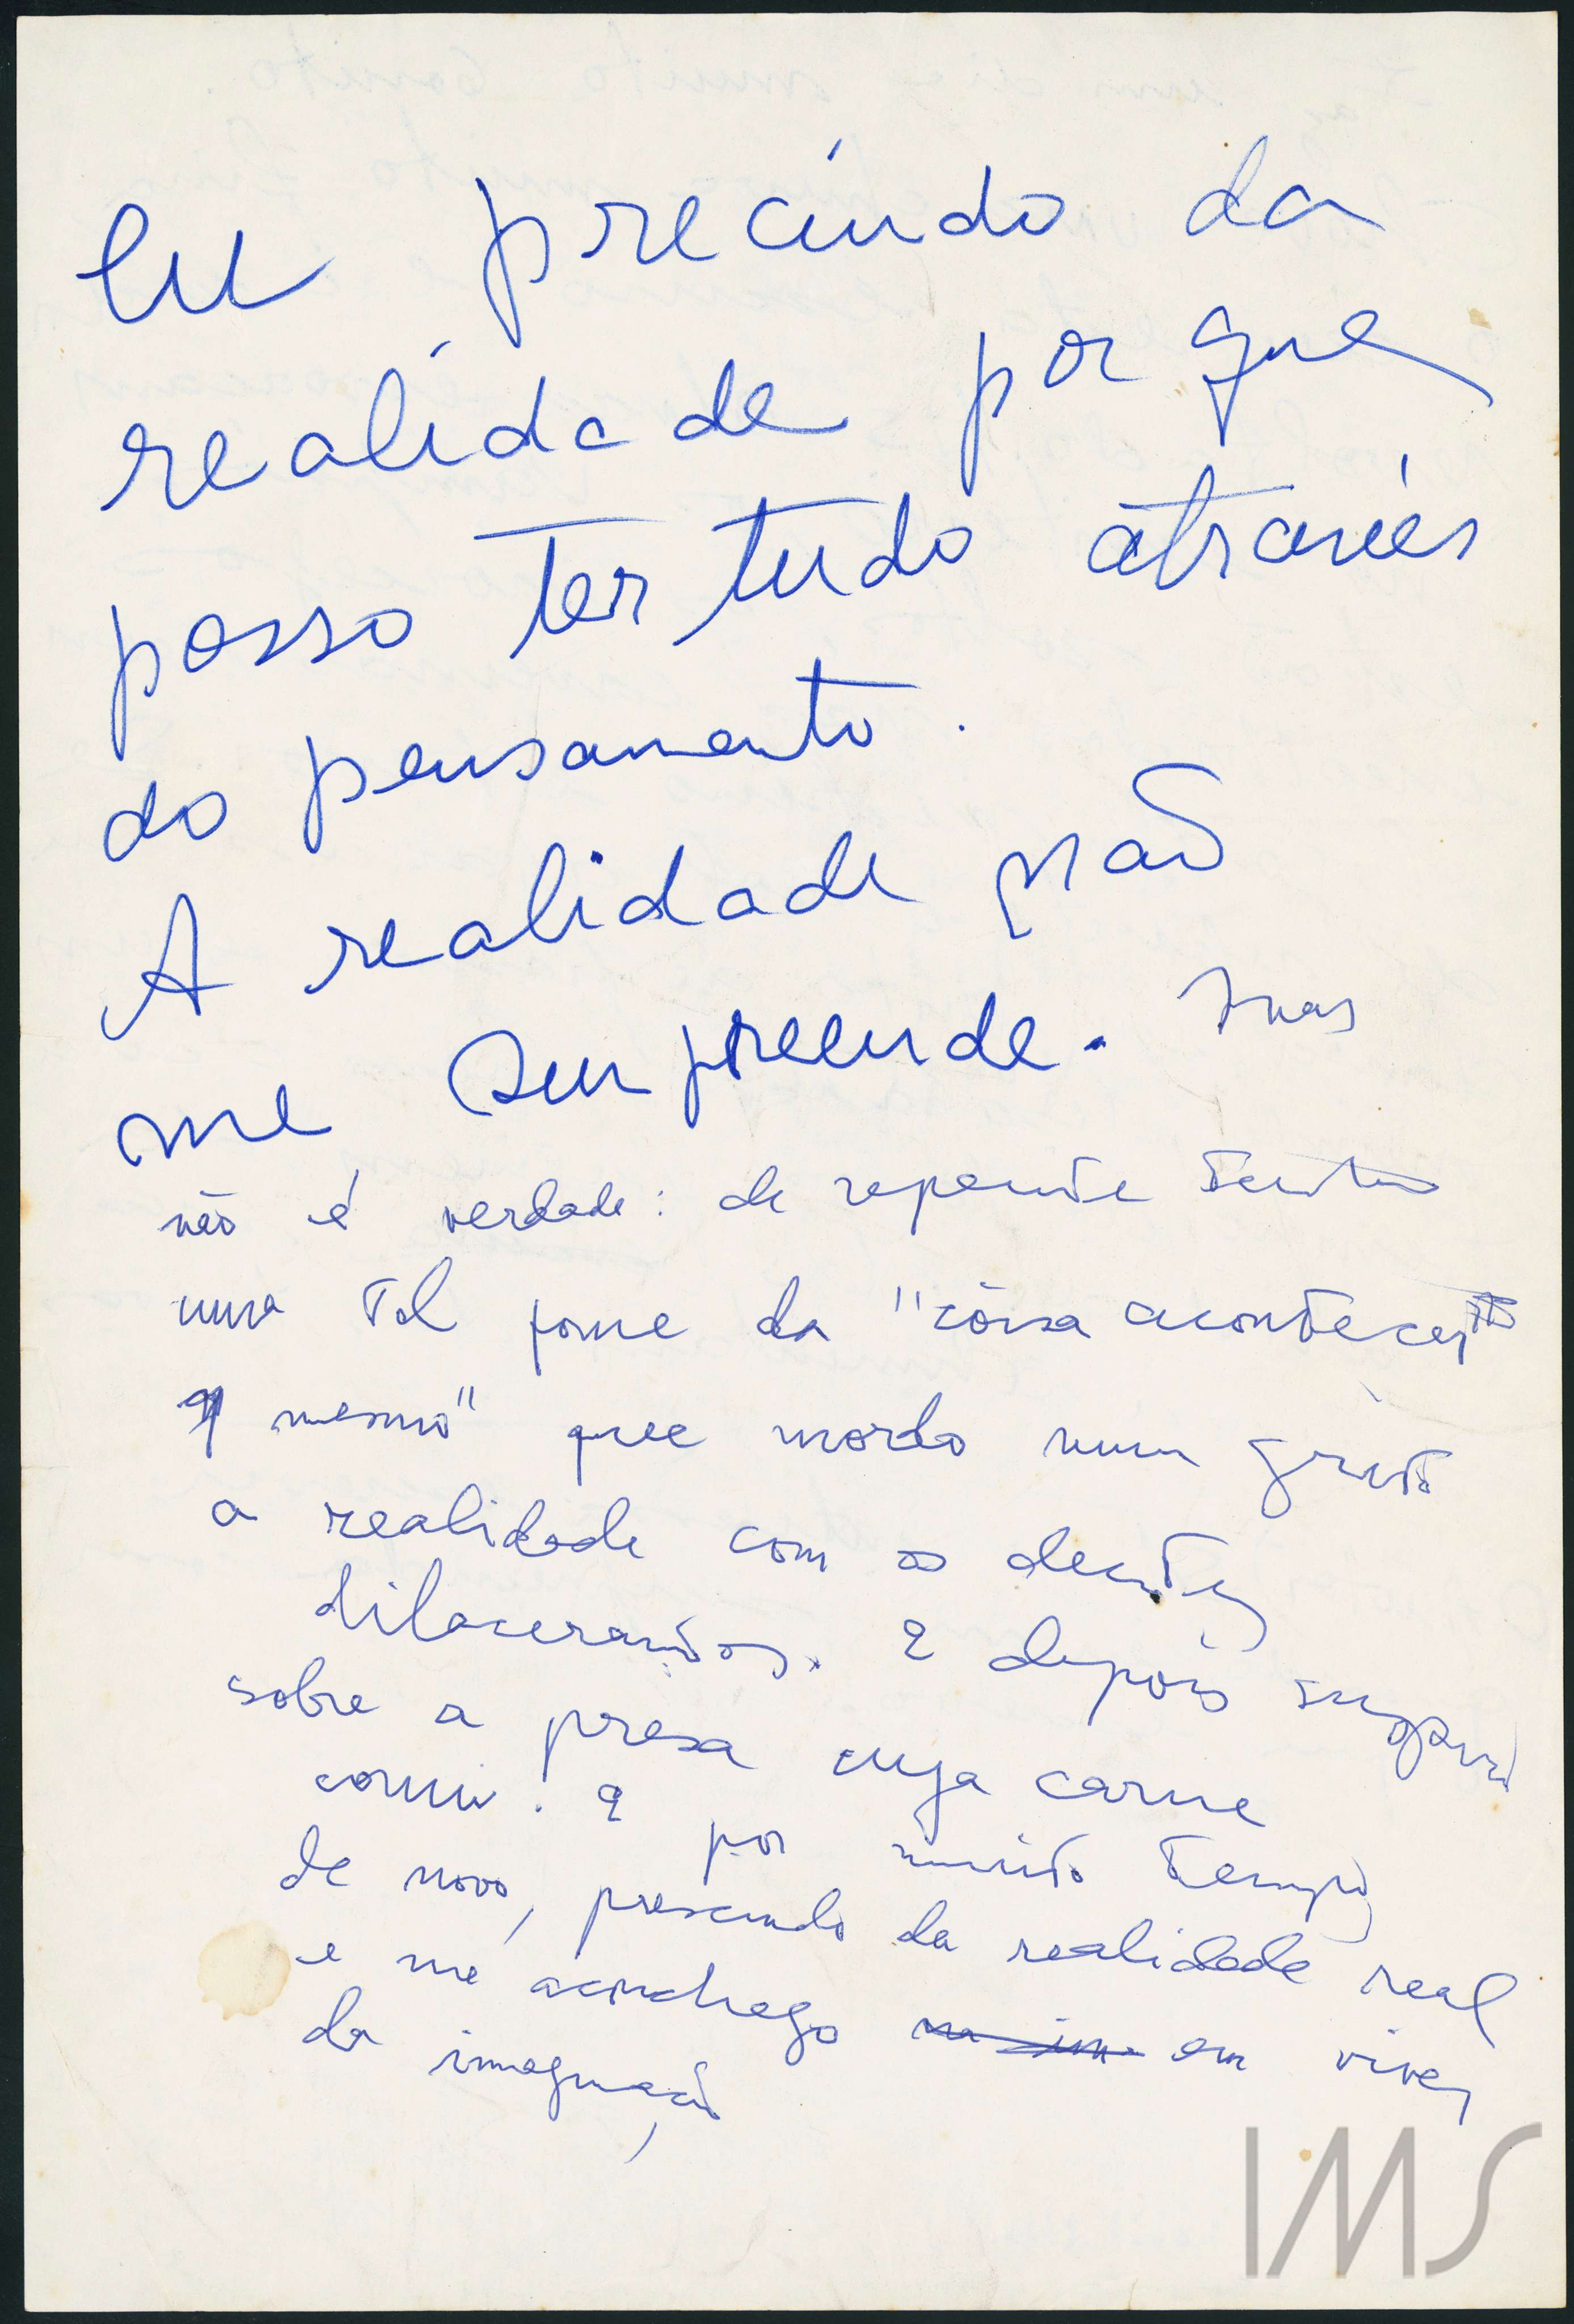 Eu precindo da
realidade por que
posso ter tudo através
do pensamento.
A realidade não
me surpreende. Mas
não é verdade: de repente tenho
uma tal fome da "coisa acontecer
mesmo" que mordo num grito
a realidade com os dentes
dilacerantes. E depois suspiro
sobre a presa cuja carne
comi. E por muito tempo,
de novo, prescindo da realidade real
e me aconchego em viver
da imaginação
IMS